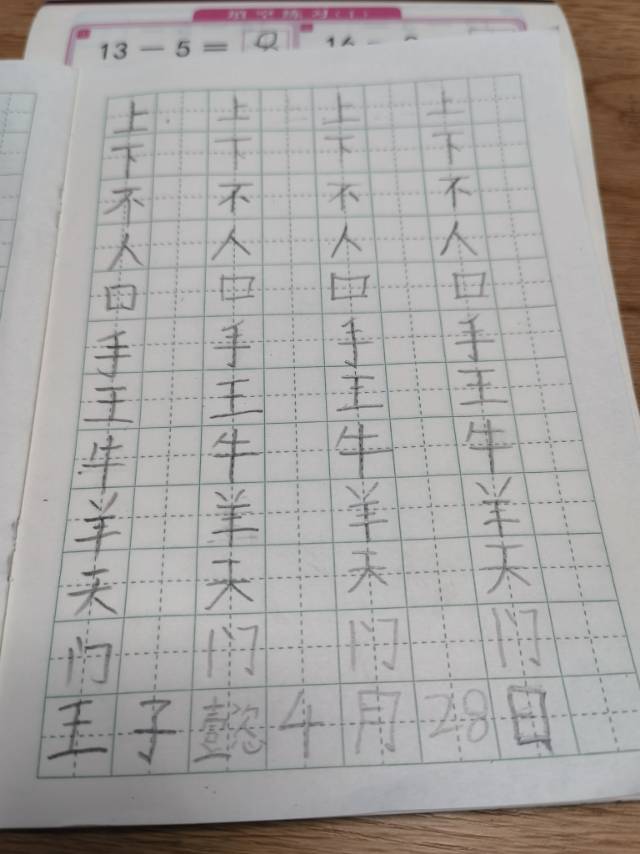 填空练习(1)
13 - 5 = 8
上 上 上 上
下 下 下 下
不 不 不 不
人 人 人 人
口 口 口 口
手 手 手 手
王 王 王 王
牛 牛 牛 牛
羊 羊 羊 羊
天 天 天 天
门 门 门 门
王子懿4月28日